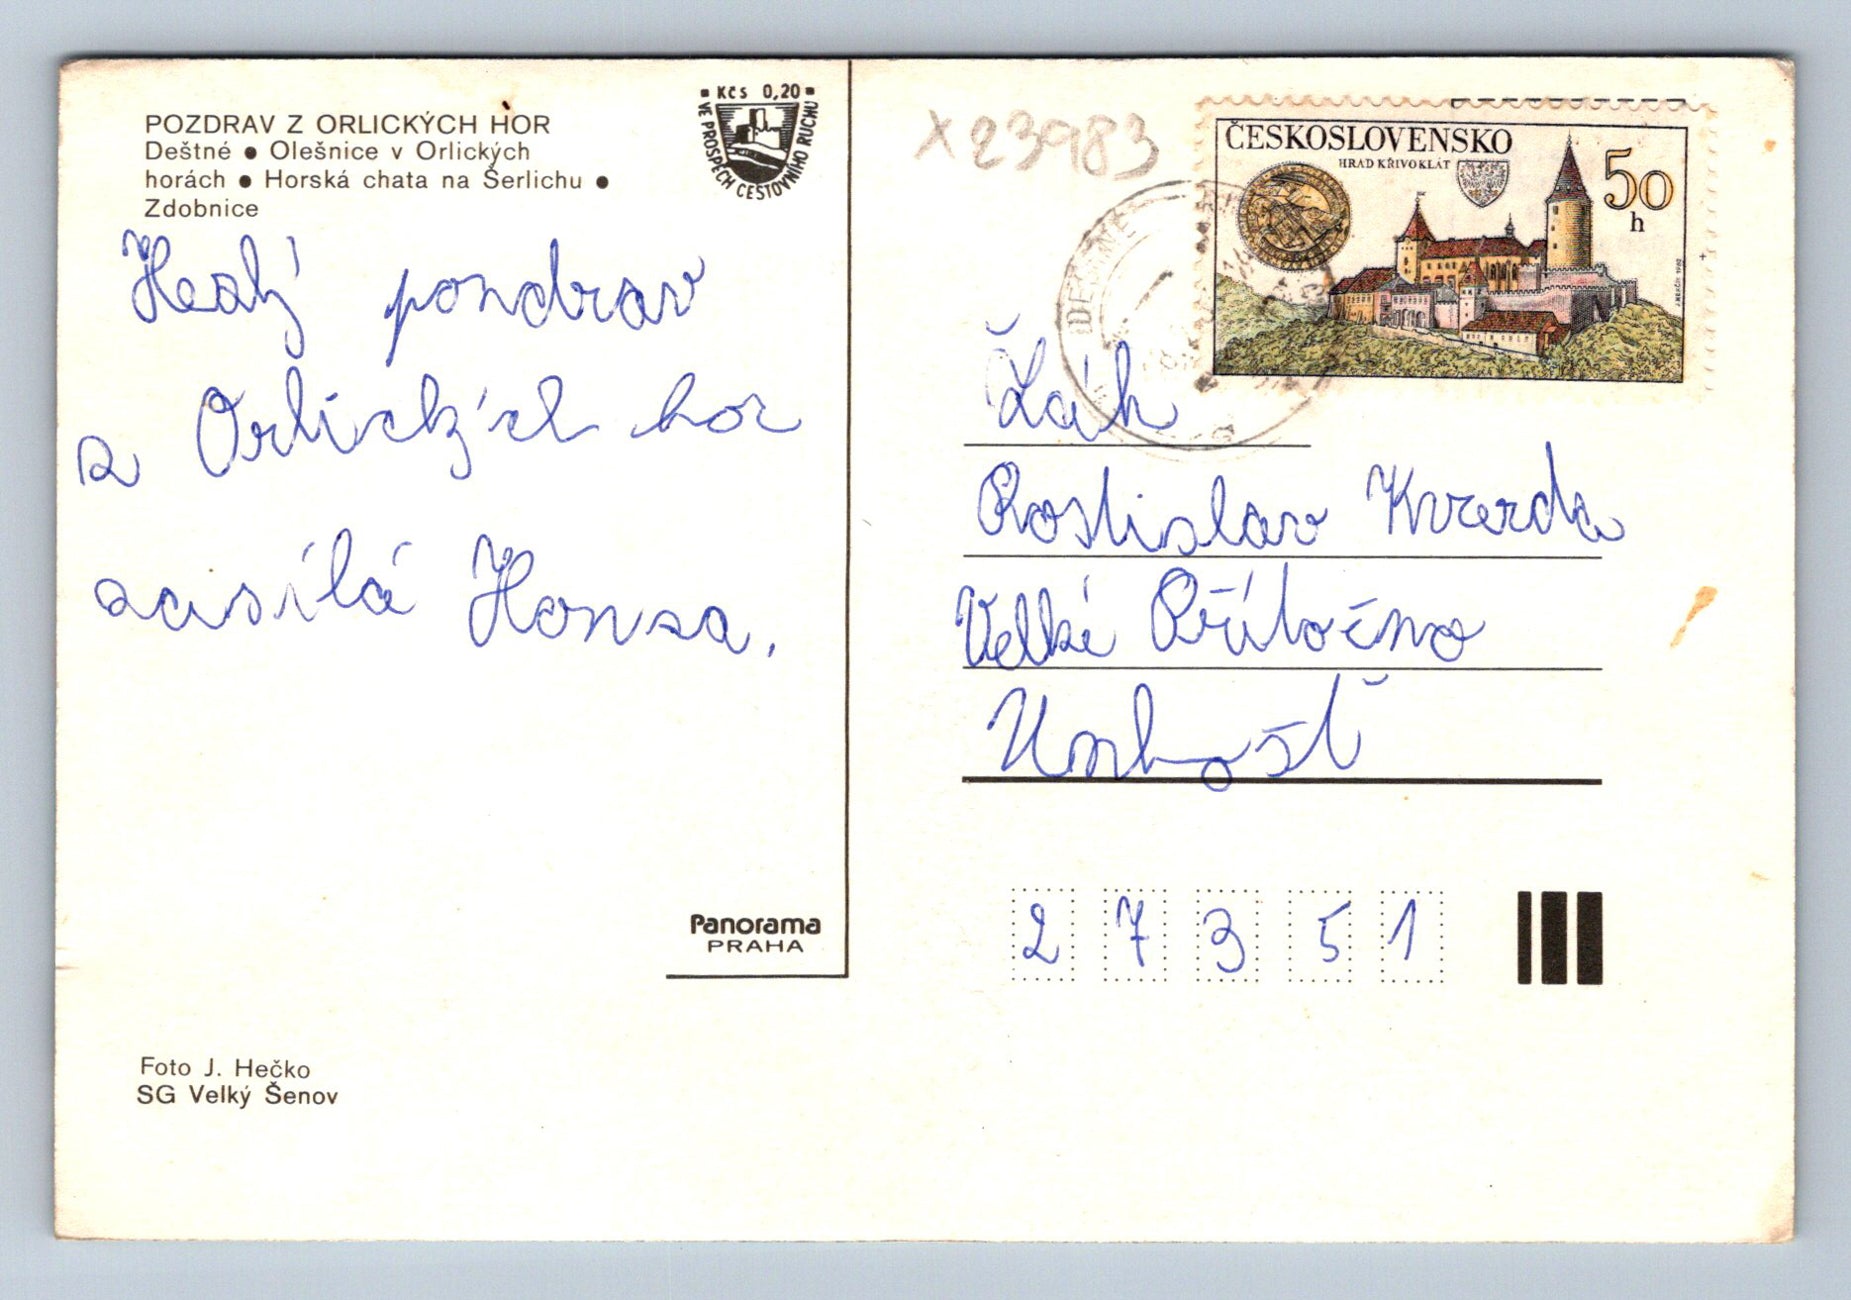 POZDRAV Z ORLICKÝCH HOR
Deštné • Olešnice v Orlických
horách • Horská chata na Šerlichu •
Zdobnice
Kčs 0,20
VE PROSPĚCH CESTOVNÍHO RUCHU
Hezký pozdrav
z Orlických hor
zasílá Honza.
Panorama
PRAHA
Foto J. Hečko
SG Velký Šenov
X23983
ČESKOSLOVENSKO
HRAD KŘIVOKLÁT
50
h
DEŠTNÉ
Žák
Rostislav Kverda
Velké Přítočno
Unhošť
27351